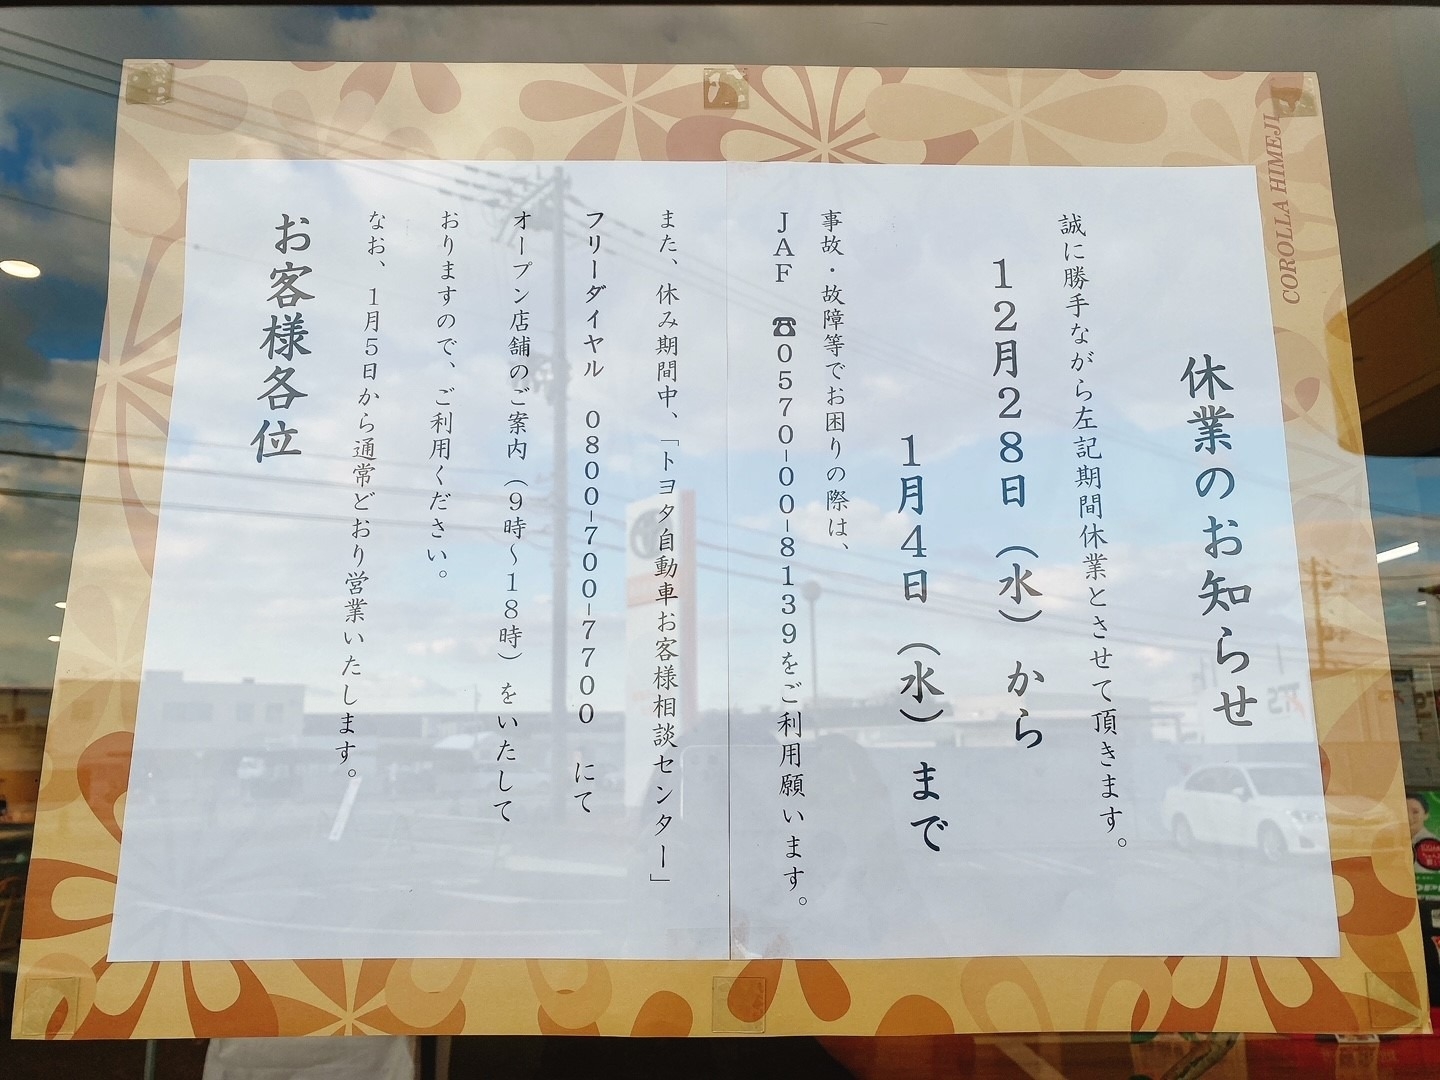 休業のお知らせ
誠に勝手ながら左記期間休業とさせて頂きます。
12月28日(水)から
1月4日(水)まで
事故・故障等でお困りの際は、
JAF ☎0570-00-8139をご利用願います。
また、休み期間中、「トヨタ自動車お客様相談センター」
フリーダイヤル 0800-700-7700 にて
オープン店舗のご案内(9時~18時)をいたして
おりますので、ご利用ください。
なお、1月5日から通常どおり営業いたします。
お客様各位
COROLLA HIMEJI